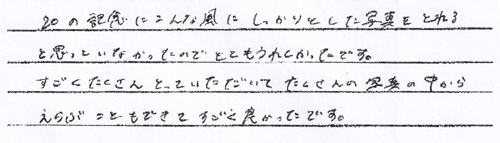 20の記念にこんな風にしっかりとした写真をとれる
と思っていなかったのでとてもうれしかったです。
すごくたくさんとっていただいてたくさんの写真の中から
えらぶこともできてすごく良かったです。